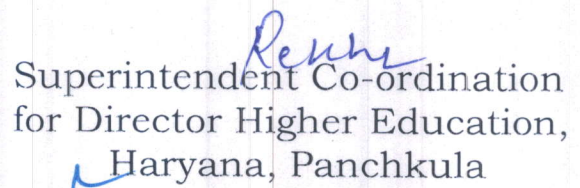 Rekha
Superintendent Co-ordination
for Director Higher Education,
Haryana, Panchkula